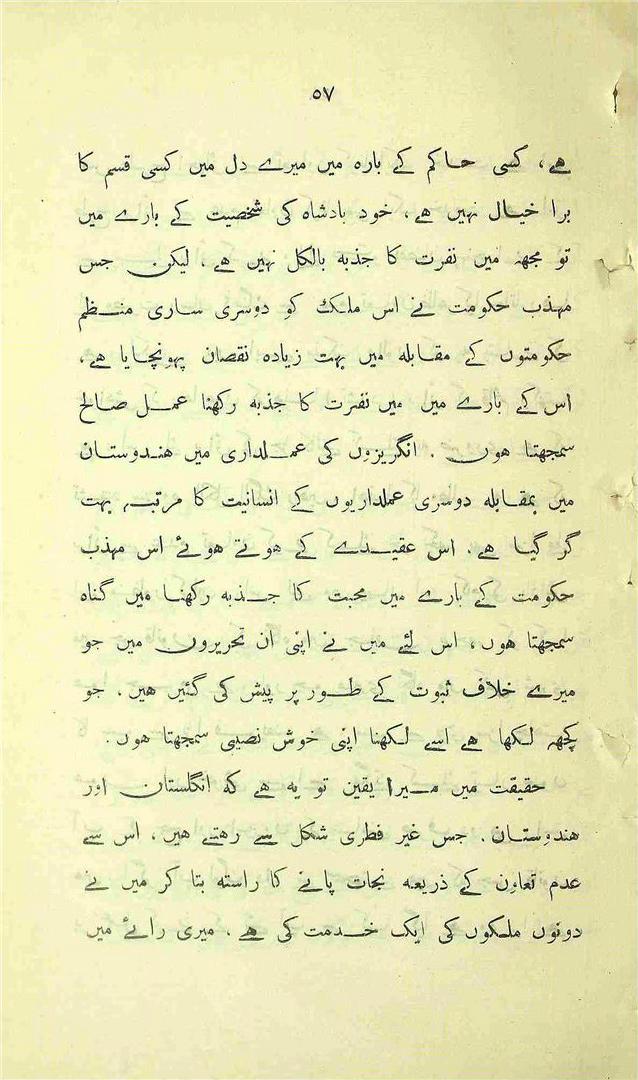 ٥٧
ہے، کسی حاکم کے بارہ میں میرے دل میں کسی قسم کا
برا خیال نہیں ہے، خود بادشاہ کی شخصیت کے بارے میں
تو مجھہ میں نفرت کا جذبہ بالکل نہیں ہے، لیکن جس
مہذب حکومت نے اس ملک کو دوسری ساری منظم
حکومتوں کے مقابلہ میں بہت زیادہ نقصان پہونچایا ہے،
اس کے بارے میں میں نفرت کا جذبہ رکھنا عمل صالح
سمجھتا ہوں۔ انگریزوں کی عملداری میں ہندوستان
میں بمقابلہ دوسری عملداریوں کے انسانیت کا مرتبہ بہت
گر گیا ہے۔ اس عقیدے کے ہوتے ہوئے اس مہذب
حکومت کے بارے میں محبت کا جذبہ رکھنا میں گناہ
سمجھتا ہوں، اس لئے میں نے اپنی ان تحریروں میں جو
میرے خلاف ثبوت کے طور پر پیش کی گئیں ہیں۔ جو
کچھہ لکھا ہے اسے لکھنا اپنی خوش نصیبی سمجھتا ہوں۔
حقیقت میں میرا یقین تو یہ ہے کہ انگلستان اور
ہندوستان۔ جس غیر فطری شکل سے رہتے ہیں، اس سے
عدم تعاون کے ذریعہ نجات پانے کا راستہ بتا کر میں نے
دونوں ملکوں کی ایک خدمت کی ہے۔ میری رائے میں